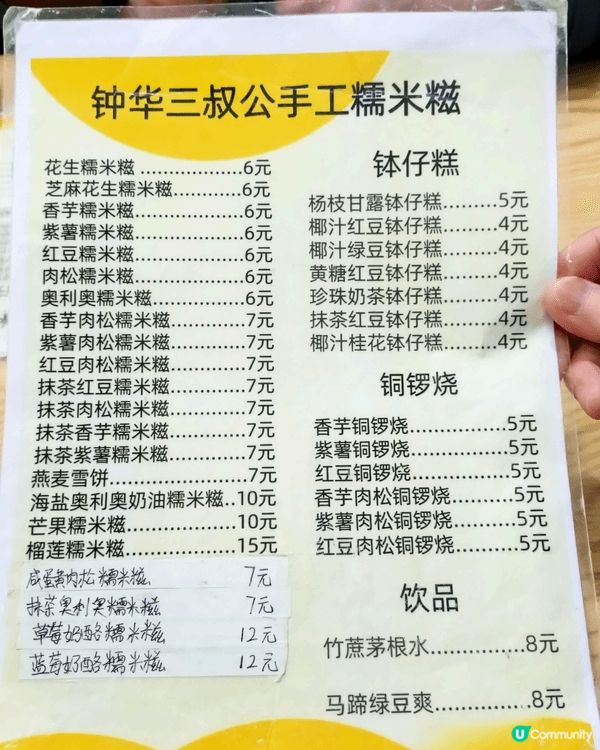 钟华三叔公手工糯米糍
花生糯米糍..................6元
芝麻花生糯米糍............6元
香芋糯米糍..................6元
紫薯糯米糍..................6元
红豆糯米糍..................6元
肉松糯米糍..................6元
奥利奥糯米糍...............6元
香芋肉松糯米糍............7元
紫薯肉松糯米糍............7元
红豆肉松糯米糍............7元
抹茶红豆糯米糍............7元
抹茶肉松糯米糍............7元
抹茶香芋糯米糍............7元
抹茶紫薯糯米糍............7元
燕麦雪饼........................7元
海盐奥利奥奶油糯米糍..10元
芒果糯米糍..................10元
榴莲糯米糍..................15元
咸蛋黄肉松糯米糍 7元
抹茶奥利奥糯米糍 7元
草莓奶酪糯米糍 12元
蓝莓奶酪糯米糍 12元
钵仔糕
杨枝甘露钵仔糕.........5元
椰汁红豆钵仔糕.........4元
椰汁绿豆钵仔糕.........4元
黄糖红豆钵仔糕.........4元
珍珠奶茶钵仔糕.........4元
抹茶红豆钵仔糕.........4元
椰汁桂花钵仔糕.........4元
铜锣烧
香芋铜锣烧...............5元
紫薯铜锣烧...............5元
红豆铜锣烧...............5元
香芋肉松铜锣烧.........5元
紫薯肉松铜锣烧.........5元
红豆肉松铜锣烧.........5元
饮品
竹蔗茅根水...............8元
马蹄绿豆爽...............8元
U Community